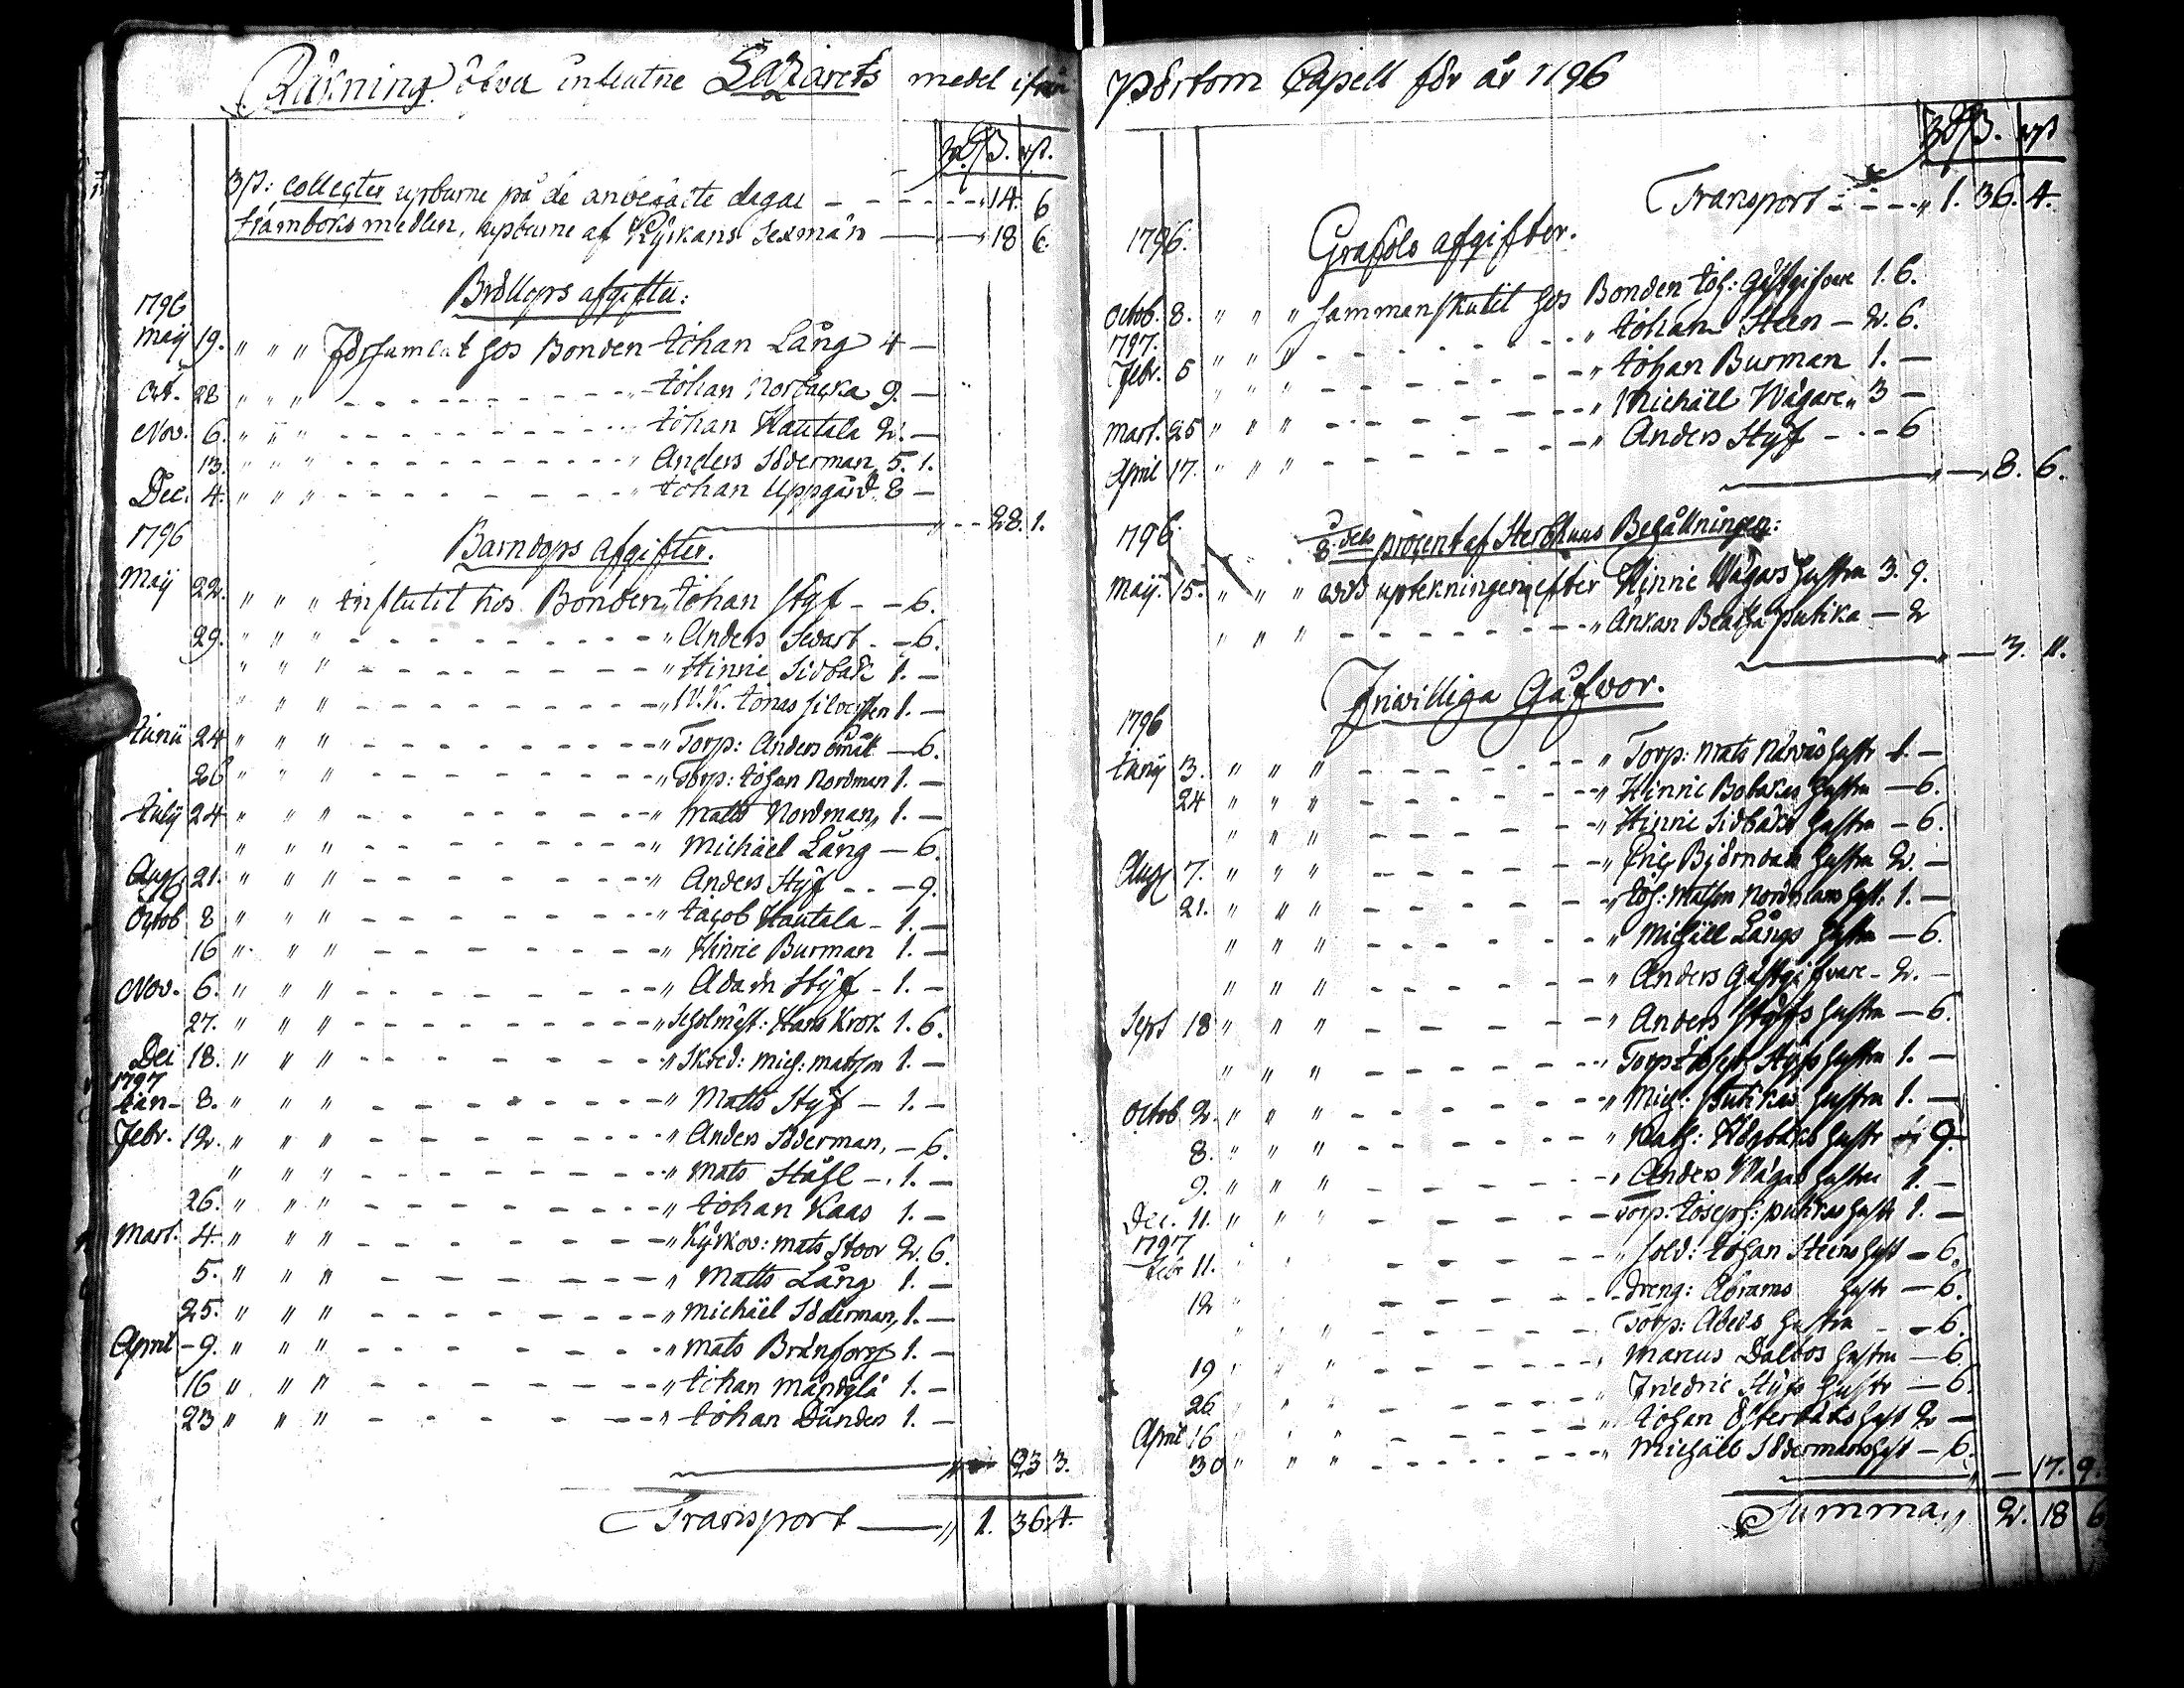 Räkning öfver influtne Lazarets medel ifrån
Rd. ß. rst.
3 st: collecter upburne på de anbefalte dagar – 14. 6
Stamboks medlen, upburne af Kyrkans Sexmän – 18 6.
Bröllops afgifter:
1796
Maij 19. " " " Församlat hos Bonden Johan Lång 4 –
Oct. 28 " " " – Johan Norbacka 9. –
Nov. 6. " " " – Johan Hautala 2. –
13. " " " – " Anders Söderman 5. 1.
Dec. 4. " " " – " Johan Uppgård 8 –
" – 28. 1.
1796
Barndops afgifter.
Maij 22. " " " influtit hos Bonden, Johan Styf – 6.
29. " " " – " Anders Svart – 6.
" " " – " Hinric Sidbäck 1. –
" " " – " V.K. Jonas Silversten 1. –
Junii 24 " " " – " Torp: Anders Småt – 6.
26 " " " – " Torp: Johan Nordman 1. –
Julij 24 " " " – " Matts Nordman, 1. –
" " " – " Michäel Lång – 6.
Aug. 21. " " " – " Anders Styf – 9.
Octob 8 " " " – " Jacob Hautala – 1. –
16 " " " – " Hinric Burman 1. –
Nov. 6. " " " – " Adam Styf – 1. –
27. " " " – " Scholmäst: Hans Krok 1. 6.
Dec 18. " " " – " Skred: Mich: Matsson 1. –
1797
Jan – 8. " " " – " Matts Styf – 1. –
Febr. 12. " " " – " Anders Söderman, – 6.
" " " – " Mats Ståhl – 1. –
26. " " " – " Johan Kaas 1. –
Mart. 4. " " " – " Kyrkov: Mats Stoor 2. 6.
5. " " " – " Matts Lång 1. –
25. " " " – " Michäel Söderman, 1. –
April – 9. " " " – " Mats Bränforss 1. –
16 " " " – " Johan 1. –
23 " " " – " Johan Dunders 1. –
" 23 3.
Transport – " 1. 36. 4.
Pörtom Capell för år 1796
Rd. ß. rst
Transport – " 1. 36. 4.
1796.
Grafööls afgifter.
Octob. 8. " " " Sammanskutit hos Bonden Joh: Gästgifvare 1. 6.
1797.
Febr. 5 " " " – " Johan Steen – 2. 6.
" " " – " Johan Burman 1. –
Mart. 25 " " " – " Michäel Wägare " 3 –
April 17. " " " – " Anders Styf – 6
" – 8. 6.
1796.
8 dels procent af Sterbhuus Behållningen:
Maij. 15. " " " wid uptekningen efter Hinric Wägars Hustru 3. 9.
" " " – " Änkan Beata Putika – 2
" – 3. 11.
Friwilliga Gåfvor.
1796
Junij 3. " " " – " Torp: Mats Närväs hustr 1. –
24 " " " – " Hinric Bobakas hustru – 6.
" " " – " Hinric Sidbäks hustru – 6.
Aug 7. " " " – " Eric Björndals hustru 2. –
21. " " " – " Joh: Matsson Nordmans hust: 1. –
" " " – " Michäel Långs hustru – 6.
" " " – " Anders Gästgifvare – 2. –
Sept 18 " " " – " Anders Styfs hustru – 6.
" " " – " Torp: Joseph Styfs hustru 1. –
Octob 2. " " " – " Mich: Putikas hustru 1. –
8. " " " – " Math: Högbäcks hustr 9.
9. " " " – " Anders Wägars hustru 1. –
Dec. 11. " " " – Torp: Joseph: Putikas hustr 1. –
1797
Febr 11. – " Sold: Johan Steens hust – 6.
12 " – Dreng: Abrams hustr – 6.
" " " – Torp: Abels hustru – 6.
19 " " – " Marcus Dalbos hustru – 6.
26 " " " – " Friedric Styfs hustr – 6.
April 16 " " – " Johan Österbäcks hust 2 –
30 " " " – " Michäel Södermans hust – 6.
" – 17. 9.
Summa " 2. 18 6